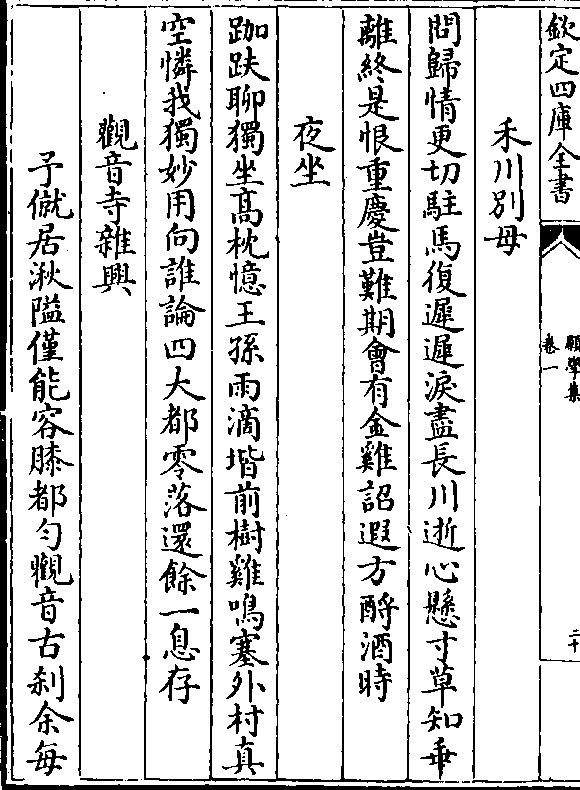 欽定四庫全書
願學集
卷一
二十
禾川別母
問歸情更切駐馬復遲遲淚盡長川逝心懸寸草知乖
離終是恨重慶豈難期會有金雞詔遐方酹酒時
夜坐
跏趺聊獨坐髙枕憶王孫雨滴堦前樹雞鳴塞外村真
空憐我獨妙用向誰論四大都零落還餘一息存
觀音寺雜興
予僦居湫隘僅能容膝都勻觀音古刹余每